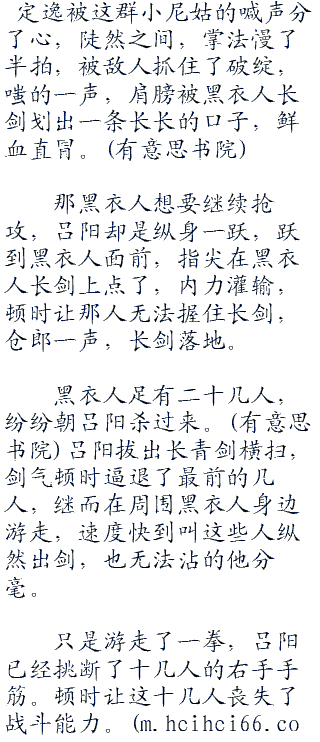 定逸被这群小尼姑的喊声分
了心，陡然之间，掌法慢了
半拍，被敌人抓住了破绽，
嗤的一声，肩膀被黑衣人长
剑划出一条长长的口子，鲜
血直冒。(有意思书院)
那黑衣人想要继续抢
攻，吕阳却是纵身一跃，跃
到黑衣人面前，指尖在黑衣
人长剑上点了，内力灌输，
顿时让那人无法握住长剑，
仓郎一声，长剑落地。
黑衣人足有二十几人，
纷纷朝吕阳杀过来。(有意思
书院)吕阳拔出长青剑横扫，
剑气顿时逼退了最前的几
人，继而在周围黑衣人身边
游走，速度快到叫这些人纵
然出剑，也无法沾的他分
毫。
只是游走了一拳，吕阳
已经挑断了十几人的右手手
筋。顿时让这十几人丧失了
战斗能力。(m.hcihci66.co